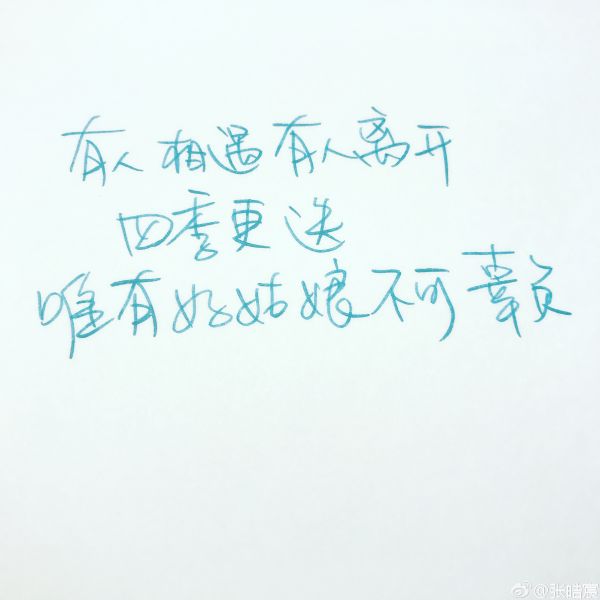 有人相遇有人离开
四季更迭
唯有好姑娘不可辜负
@张皓宸